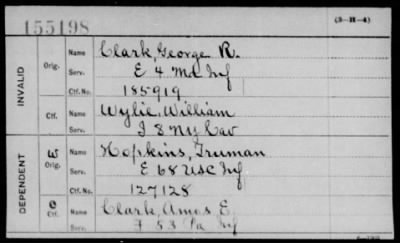 155198
(3-H-4)
INVALID
Orig. Name Clark, George R.
Serv. E 4 Md Inf
Ctf. No. 185919
Ctf. Name Wylie, William
Serv. I 8 Ny Cav
DEPENDENT
W Orig. Name Hopkins, Truman
Serv. E 68 USC Inf
Ctf. No. 127128
C Ctf. Name Clark, Amos E.
Serv. F 53 Pa Inf